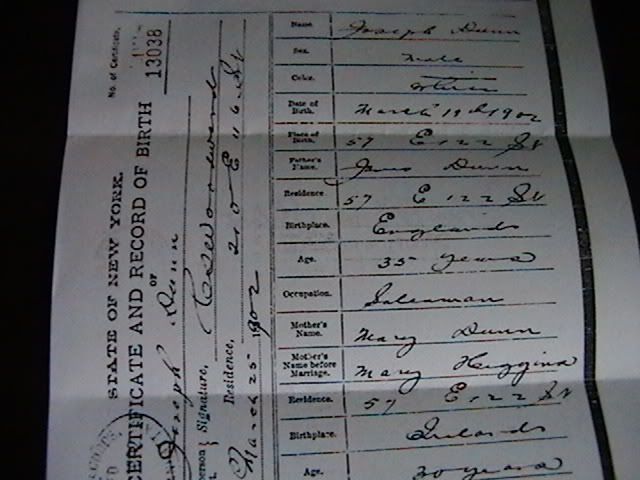 STATE OF NEW YORK.
CERTIFICATE AND RECORD OF BIRTH
OF
Joseph Dunn
No. of Certificate,
13038
Signature,
Residence, 210 E 116 St
March 25 1902
Name. Joseph Dunn
Sex. Male
Color.
Date of Birth. March 19th 1902
Place of Birth. 57 E 122 St
Father's Name. James Dunn
Residence. 57 E 122 St
Birthplace. England
Age. 35 years
Occupation. Salesman
Mother's Name. Mary Dunn
Mother's Name before Marriage. Mary Huggins
Residence. 57 E 122 St
Birthplace. Ireland
Age. 30 years